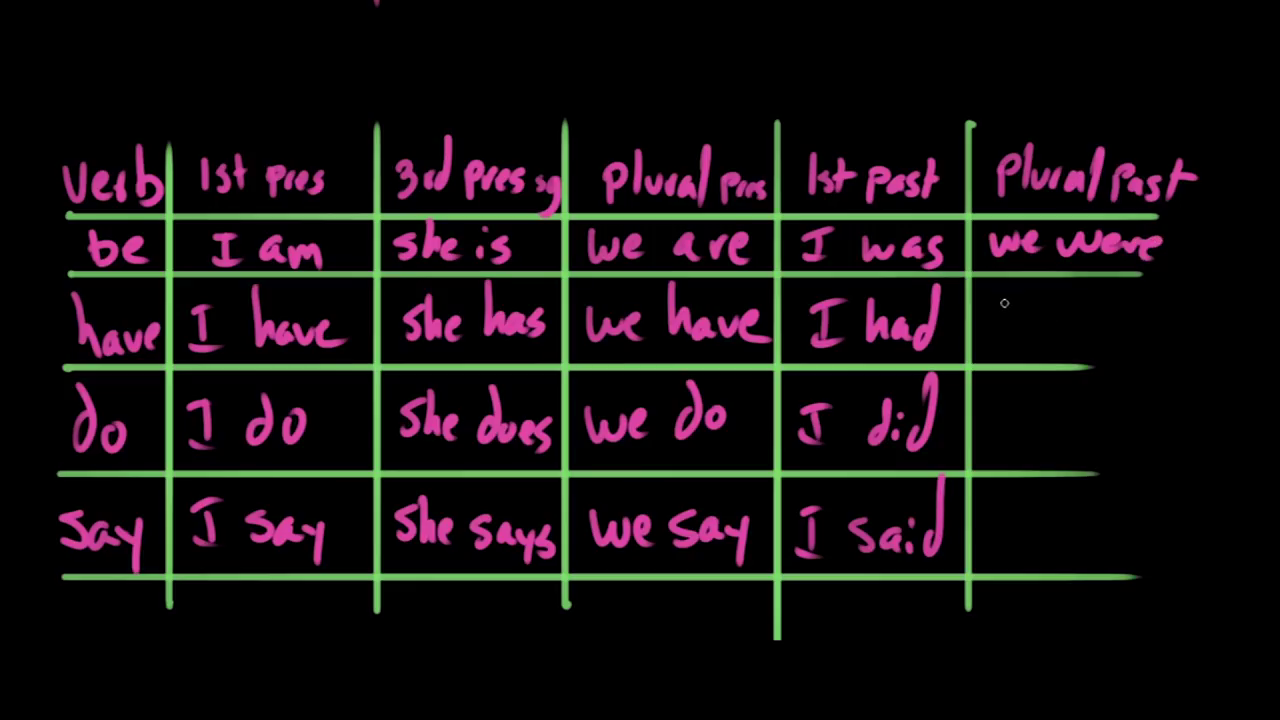 verb 1st pres 3rd pres sg plural pres 1st past plural past
be I am she is we are I was we were
have I have she has we have I had
do I do she does we do I did
say I say she says we say I said